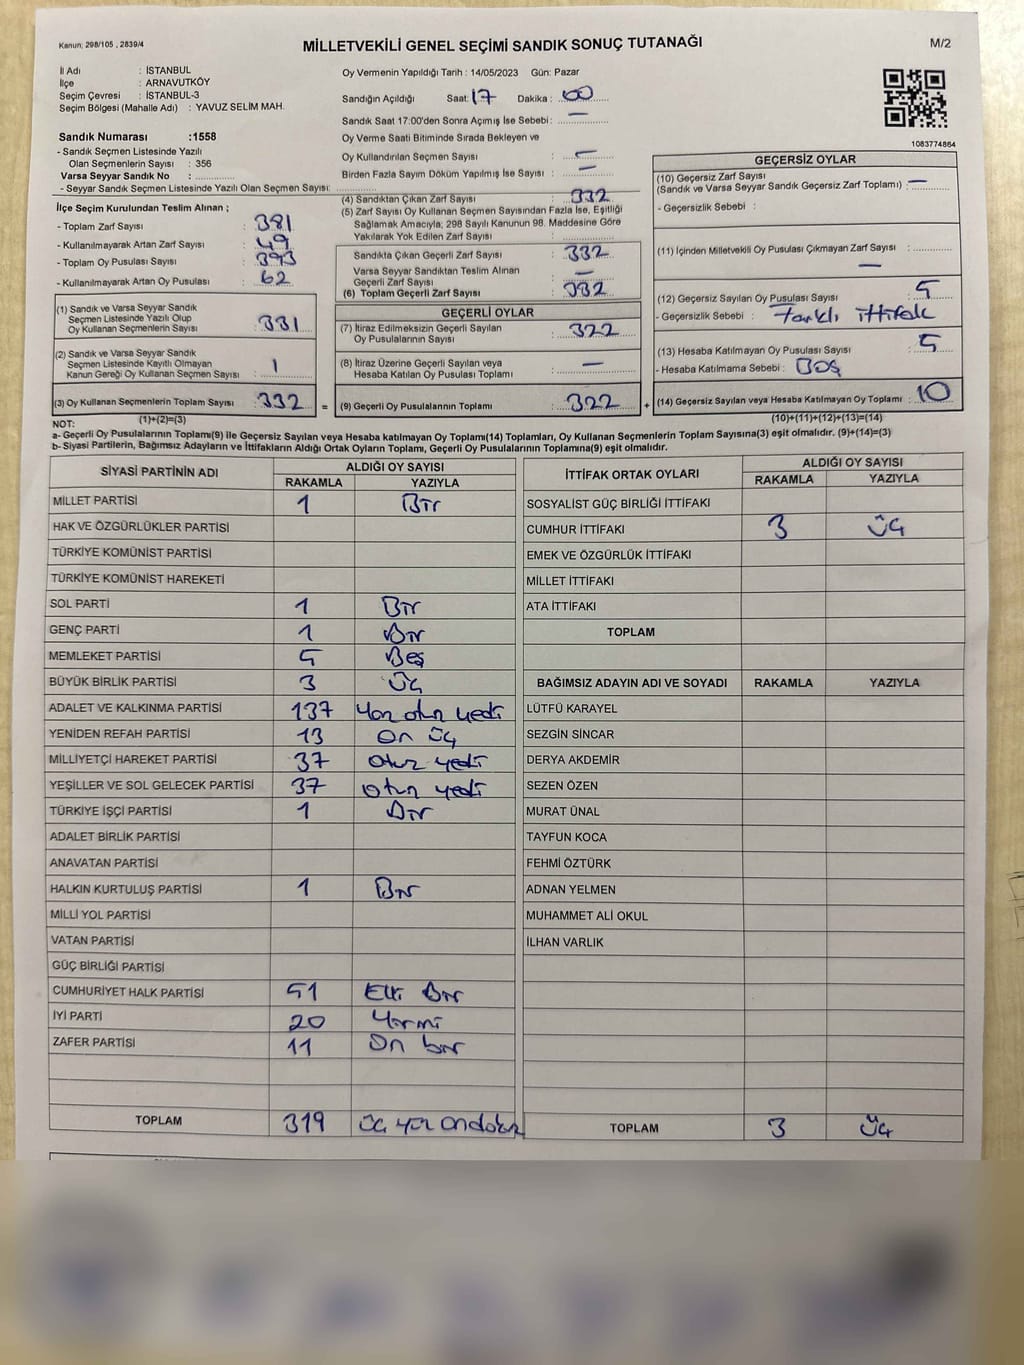 Kanun; 298/105 , 2839/4
MİLLETVEKİLİ GENEL SEÇİMİ SANDIK SONUÇ TUTANAĞI
M/2
İl Adı : İSTANBUL
İlçe : ARNAVUTKÖY
Seçim Çevresi : İSTANBUL-3
Seçim Bölgesi (Mahalle Adı) : YAVUZ SELİM MAH.
Sandık Numarası :1558
- Sandık Seçmen Listesinde Yazılı
Olan Seçmenlerin Sayısı : 356
Varsa Seyyar Sandık No :
- Seyyar Sandık Seçmen Listesinde Yazılı Olan Seçmen Sayısı:
Oy Vermenin Yapıldığı Tarih : 14/05/2023 Gün: Pazar
Sandığın Açıldığı Saat: 17 Dakika : 00
Sandık Saat 17:00'den Sonra Açımış İse Sebebi : —
Oy Verme Saati Bitiminde Sırada Bekleyen ve
Oy Kullandırılan Seçmen Sayısı : —
Birden Fazla Sayım Döküm Yapılmış İse Sayısı : —
1083774864
İlçe Seçim Kurulundan Teslim Alınan ;
- Toplam Zarf Sayısı : 381
- Kullanılmayarak Artan Zarf Sayısı : 49
- Toplam Oy Pusulası Sayısı : 393
- Kullanılmayarak Artan Oy Pusulası : 62
(1) Sandık ve Varsa Seyyar Sandık
Seçmen Listesinde Yazılı Olup
Oy Kullanan Seçmenlerin Sayısı : 331
(2) Sandık ve Varsa Seyyar Sandık
Seçmen Listesinde Kayıtlı Olmayan
Kanun Gereği Oy Kullanan Seçmen Sayısı : 1
(3) Oy Kullanan Seçmenlerin Toplam Sayısı : 332 =
(1)+(2)=(3)
(4) Sandıktan Çıkan Zarf Sayısı : 332
(5) Zarf Sayısı Oy Kullanan Seçmen Sayısından Fazla İse, Eşitliği
Sağlamak Amacıyla; 298 Sayılı Kanunun 98. Maddesine Göre
Yakılarak Yok Edilen Zarf Sayısı :
Sandıkta Çıkan Geçerli Zarf Sayısı : 332
Varsa Seyyar Sandıktan Teslim Alınan
Geçerli Zarf Sayısı : —
(6) Toplam Geçerli Zarf Sayısı : 332
GEÇERLİ OYLAR
(7) İtiraz Edilmeksizin Geçerli Sayılan
Oy Pusulalarının Sayısı : 322
(8) İtiraz Üzerine Geçerli Sayılan veya
Hesaba Katılan Oy Pusulası Toplamı : —
(9) Geçerli Oy Pusulalarının Toplamı : 322 +
GEÇERSİZ OYLAR
(10) Geçersiz Zarf Sayısı
(Sandık ve Varsa Seyyar Sandık Geçersiz Zarf Toplamı) : —
- Geçersizlik Sebebi :
(11) İçinden Milletvekili Oy Pusulası Çıkmayan Zarf Sayısı :
—
(12) Geçersiz Sayılan Oy Pusulası Sayısı : 5
- Geçersizlik Sebebi : Farklı ittifak
(13) Hesaba Katılmayan Oy Pusulası Sayısı : 5
- Hesaba Katılmama Sebebi : Boş
(14) Geçersiz Sayılan veya Hesaba Katılmayan Oy Toplamı : 10
(10)+(11)+(12)+(13)=(14)
NOT:
a- Geçerli Oy Pusulalarının Toplamı(9) ile Geçersiz Sayılan veya Hesaba katılmayan Oy Toplam(14) Toplamları, Oy Kullanan Seçmenlerin Toplam Sayısına(3) eşit olmalıdır. (9)+(14)=(3)
b- Siyasi Partilerin, Bağımsız Adayların ve İttifakların Aldığı Ortak Oyların Toplamı, Geçerli Oy Pusulalarının Toplamına(9) eşit olmalıdır.
SİYASİ PARTİNİN ADI ALDIĞI OY SAYISI
RAKAMLA YAZIYLA
MİLLET PARTİSİ 1 Bir
HAK VE ÖZGÜRLÜKLER PARTİSİ
TÜRKİYE KOMÜNİST PARTİSİ
TÜRKİYE KOMÜNİST HAREKETİ
SOL PARTİ 1 Bir
GENÇ PARTİ 1 Bir
MEMLEKET PARTİSİ 5 Beş
BÜYÜK BİRLİK PARTİSİ 3 Üç
ADALET VE KALKINMA PARTİSİ 137 Yüz otuz yedi
YENİDEN REFAH PARTİSİ 13 On üç
MİLLİYETÇİ HAREKET PARTİSİ 37 otuz yedi
YEŞİLLER VE SOL GELECEK PARTİSİ 37 otuz yedi
TÜRKİYE İŞÇİ PARTİSİ 1 Bir
ADALET BİRLİK PARTİSİ
ANAVATAN PARTİSİ
HALKIN KURTULUŞ PARTİSİ 1 Bir
MİLLİ YOL PARTİSİ
VATAN PARTİSİ
GÜÇ BİRLİĞİ PARTİSİ
CUMHURİYET HALK PARTİSİ 51 Elli Bir
İYİ PARTİ 20 Yirmi
ZAFER PARTİSİ 11 On bir
TOPLAM 319 üç yüz ondokuz
İTTİFAK ORTAK OYLARI ALDIĞI OY SAYISI
RAKAMLA YAZIYLA
SOSYALİST GÜÇ BİRLİĞİ İTTİFAKI
CUMHUR İTTİFAKI 3 üç
EMEK VE ÖZGÜRLÜK İTTİFAKI
MİLLET İTTİFAKI
ATA İTTİFAKI
TOPLAM
BAĞIMSIZ ADAYIN ADI VE SOYADI RAKAMLA YAZIYLA
LÜTFÜ KARAYEL
SEZGİN SİNCAR
DERYA AKDEMİR
SEZEN ÖZEN
MURAT ÜNAL
TAYFUN KOCA
FEHMİ ÖZTÜRK
ADNAN YELMEN
MUHAMMET ALİ OKUL
İLHAN VARLIK
TOPLAM 3 üç